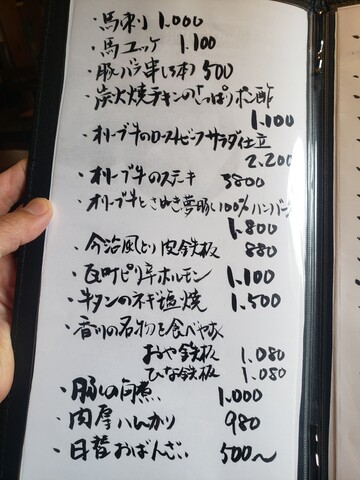 ・馬刺し 1.000
・馬ユッケ 1.100
・豚バラ串(3本) 500
・炭火焼チキンのさっぱりポン酢
1.100
・オリーブ牛のローストビーフサラダ仕立
2.200
・オリーブ牛のステーキ 3800
・オリーブ牛とさぬき夢豚の100%ハンバーグ
1.800
・今治風とり皮鉄板 880
・瓦町ピリ辛ホルモン 1.100
・牛タンのネギ塩焼 1.500
・香川の名物を食べやすく
おや鉄板 1.080
ひな鉄板 1.080
・豚の角煮 1.000
・肉厚ハムカツ 980
・日替おばんざい 500〜